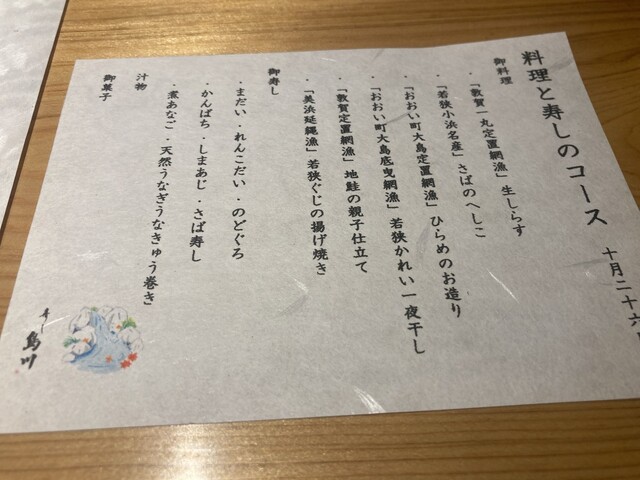 料理と寿しのコース
十月二十六
御料理
・「敦賀一丸定置網漁」生しらす
・「若狭小浜名産」さばのへしこ
・「おおい町大島定置網漁」ひらめのお造り
・「おおい町大島底曳網漁」若狭かれい一夜干し
・「敦賀定置網漁」地鮭の親子仕立て
・「美浜延縄漁」若狭ぐじの揚げ焼き
御寿し
・まだい・れんこだい・のどぐろ
・かんぱち・しまあじ・さば寿し
・煮あなご・天然うなぎうなきゅう巻き
汁物
御菓子
鳥川